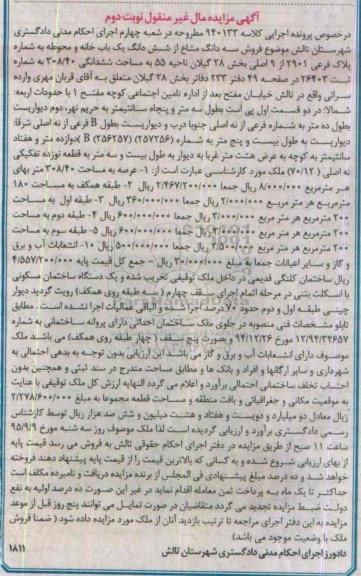 آگهی مزایده مال غیر منقول نوبت دوم
درخصوص پرونده اجرایی کلاسه 940133 مطروحه در شعبه چهارم اجرای احکام مدنی دادگستری
شهرستان تالش موضوع فروش سه دانگ مشاع از شش دانگ یک باب خانه و محوطه به شماره
پلاک فرعی 2901 از 9 اصلی بخش 28 گیلان ناحیه 55 به مساحت ششدانگی 308/40 به شماره
ثبت 26403 در صفحه 49 دفتر 233 دفاتر بخش 28 گیلان متعلق به آقای قربان مهری وارده
سراتی واقع در تالش خیابان مفتح بعد از اداره تامین اجتماعی کوچه مفتح 1 با حدودات اربعه:
شمالا: در دو قسمت اول پی است بطول سه متر و پنجاه سانتیمتر به حریم نهر، دوم دیواریست
بطول ده متر به شماره فرعی از نه اصلی جنوبا درب و دیواریست بطول B فرعی از نه اصلی شرقا:
دیواریست به طول بیست و پنج متر به شماره (257256) B (257246) دوازده متر و هفتاد
سانتیمتر به کوچه به عرض هشت متر غربا به دیوار به طول بیست و سه متر به قطعه نوزده تفکیکی
نه اصلی (70/12) ملک مورد کارشناسی عبارت است از: 1- عرصه به مساحت 308/40 متر بهای
هر مترمربع 8/000/000 ریال جمعا 2/467/200/000 ریال 2- طبقه همکف به مساحت 180
مترمربع هر متر مربع 2/000/000 ریال جمعا 360/000/000 ریال 3- طبقه اول به مساحت
200 مترمربع هر متر مربع 3/000/000 ریال جمعا 600/000/000 ریال 4- طبقه دوم به مساحت
200 مترمربع هر متر مربع 3/000/000 ریال جمعا 600/000/000 ریال 5- طبقه سوم به مساحت
200 مترمربع هر متر مربع 2/500/000 ریال جمعا 500/000/000 ریال 10- انشعابات آب و برق
و گاز و سایر اعیانات جمعا به مبلغ 30/000/000 ریال - جمع کل قیمت پایه 4/557/200/000
ریال ساختمان کلنگی قدیمی در داخل ملک توقیفی تخریب شده و یک دستگاه ساختمان مسکونی
با اسکلت بتنی در مرحله اتمام اجرای سقف چهارم (سه طبقه روی همکف) رویت گردید دیوار
چینی طبقه اول و دوم حدود 70 درصد اجرا شده و الباقی فعالیات اجرا نشده است. مطابق
تابلو مشخصات فنی منصوبه در جلوی ملک ساختمان احداثی دارای پروانه ساختمانی به شماره
12/94/32657 مورخ 94/12/26 و بصورت پنج سقف (چهار طبقه روی همکف) می باشد ملک
موصوف دارای انشعابات آب و برق و گاز می باشد این ارزیابی بدون توجه به بدهی احتمالی به
شهرداری و سایر ارگانها و افراد و بانک ها و مطابق مساحت مندرج در سند ثبتی و همچنین بدون
احتساب تخلف ساختمانی احتمالی برآورد و اعلام می گردد النهایه ارزش کل ملک توقیفی با عنایت
به موقعیت مکانی و جغرافیائی و بافت منطقه و مساحت قطعه مجموعا به مبلغ 2/278/600/000
ریال معادل دو میلیارد و دویست و هفتاد و هشت میلیون و شش صد هزار ریال توسط کارشناس
رسمی دادگستری برآورد و ارزیابی گردیده است لذا ملک موصوف روز سه شنبه مورخ 95/9/9
ساعت 11 صبح از طریق مزایده در دفتر اجرای احکام حقوقی تالش به فروش می رسد قیمت پایه
از بهای ارزیابی شروع شده و به کسانی که بالاترین قیمت را از قیمت پایه پیشنهاد دهند فروخته
خواهد شد و ده درصد مبلغ پیشنهادی فی المجلس از برنده مزایده دریافت و نامبرده مکلف است
حداکثر تا یک ماه به پرداخت ثمن معامله اقدام نماید در غیر این صورت ده درصد اولیه به نفع
دولت ضبط مزایده تجدید می گردد متقاضیان در صورت تمایل می توانند پنج روز قبل از موعد
مزایده به این دفتر اجرای مراجعه تا ترتیب بازدید آنان از ملک مورد مزایده داده شود (ضمنا فروش
ملک با وضعیت موجود می باشد)
دادورز اجرای احکام مدنی دادگستری شهرستان تالش 1811